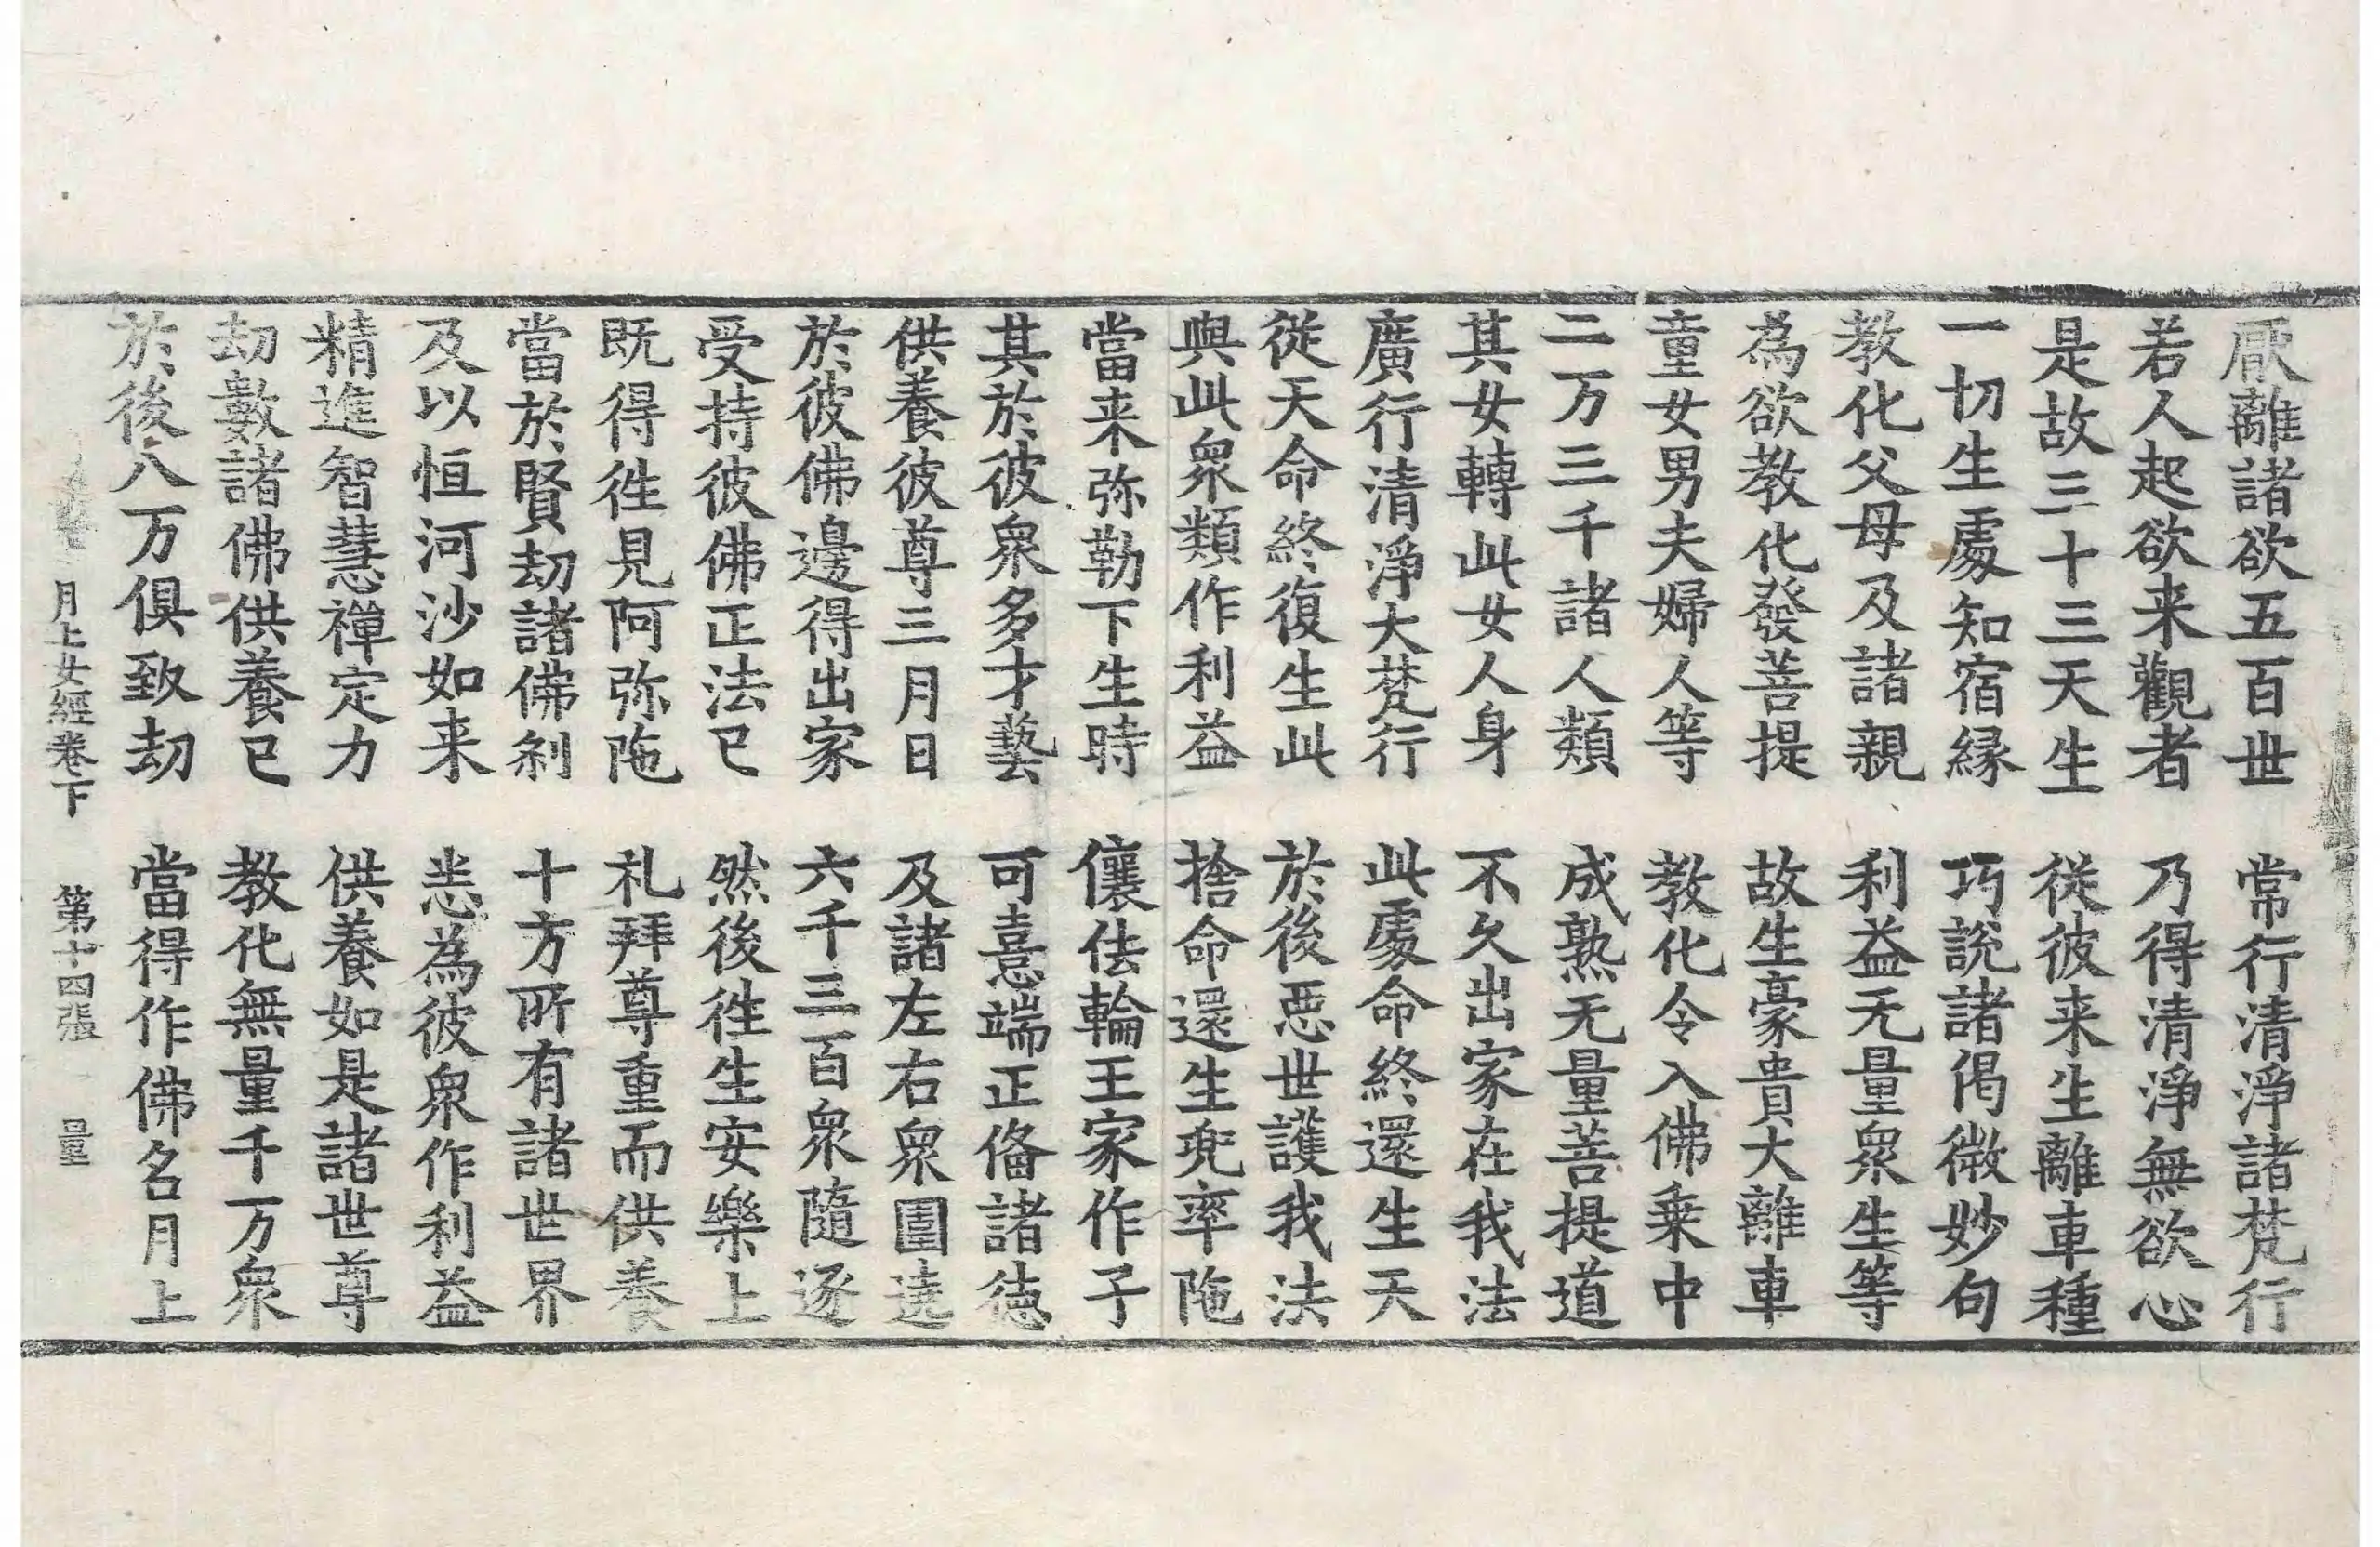 厭離諸欲五百世　常行清淨諸梵行
若人起欲来觀者　乃得清淨無欲心
是故三十三天生　從彼来生離車種
一切生處知宿縁　巧說諸偈微妙句
教化父母及諸親　利益无量衆生等
為欲教化發菩提　故生豪貴大離車
童女男夫婦人等　教化令入佛乗中
二万三千諸人類　成熟无量菩提道
其女轉此女人身　不久出家在我法
廣行清淨大梵行　此處命終還生天
從天命終復生此　於後惡世護我法
與此衆類作利益　捨命還生兜率陁
當来弥勒下生時　儴佉輪王家作子
其於彼衆多才藝　可憙端正俻諸德
供養彼尊三月日　及諸左右衆圍遶
於彼佛邊得出家　六千三百衆隨逐
受持彼佛正法已　然後徃生安樂上
既得徃見阿弥陁　礼拜尊重而供養
當於賢劫諸佛刹　十方所有諸世界
及以恒河沙如来　恙為彼衆作利益
精進智慧禪定力　供養如是諸世尊
劫數諸佛供養已　教化無量千万衆
於後八万俱致劫　當得作佛名月上
月上女經卷下　第十四張　量